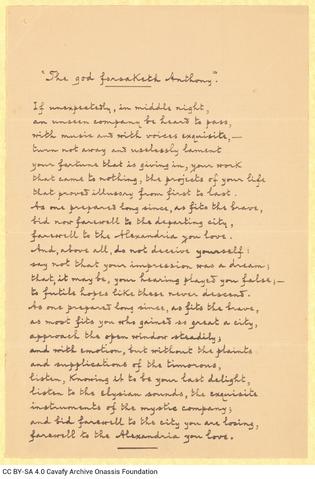 "The god forsaketh Anthony".
If unexpectedly, in middle night,
an unseen company be heard to pass,
with music and with voices exquisite,—
turn not away and uselessly lament
your fortune that is giving in, your work
that came to nothing, the projects of your life
that proved illusory from first to last.
As one prepared long since, as fits the brave,
bid now farewell to the departing city,
farewell to the Alexandria you love.
And, above all, do not deceive yourself:
say not that your impression was a dream;
that, it may be, your hearing played you false;—
to futile hopes like these never descend.
As one prepared long since, as fits the brave,
as most fits you who gained so great a city,
approach the open window steadily,
and with emotion, but without the plaints
and supplications of the timorous,
listen, knowing it to be your last delight,
listen to the elysian sounds, the exquisite
instruments of the mystic company;
and bid farewell to the city you are losing,
farewell to the Alexandria you love.
CC BY-SA 4.0 Cavafy Archive Onassis Foundation